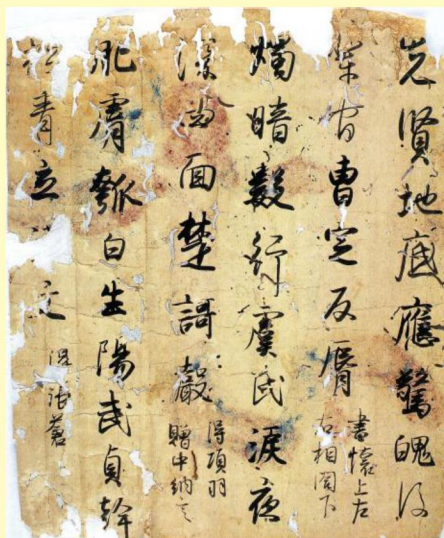 先賢地底應驚魄後
官曹定反脣
書懷上左
右相閤下
燭暗數行虞氏淚夜
深四面楚謌聲
得項羽
贈中納言
肌膚瓠白生陽武貞幹
松青立
得張蒼